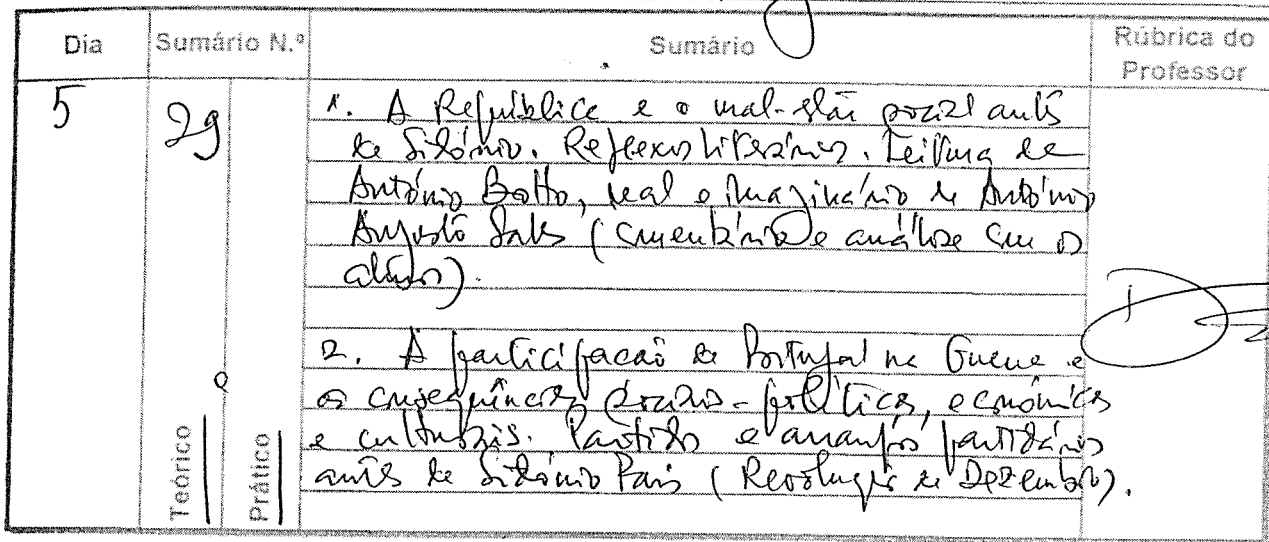 Dia Sumário N.º Sumário Rúbrica do Professor
5 29
1. A República e o mal-estar social antes
de Sidónio. Reflexos literários. Leitura de
António Botto, real e imaginário de António
Augusto Sales (comentário e análise com os
alunos).
2. A participação de Portugal na Guerra e
as consequências sócio-políticas, económicas
e culturais. Partidos e arranjos partidários
antes de Sidónio Pais (Revolução de Dezembro).
Teórico
Prático